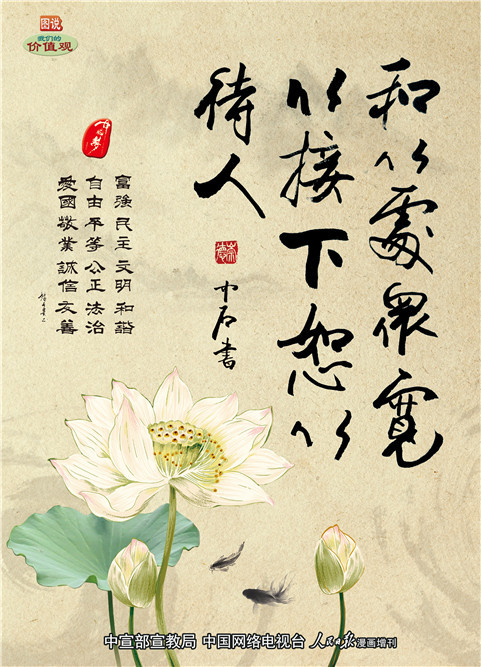 图说
我们的
价值观
和以處衆寛
以接下恕以
待人
中石書
中国梦
富強民主文明和諧
自由平等公正法治
愛國敬業誠信友善
中宣部宣教局 中国网络电视台 人民日报漫画增刊